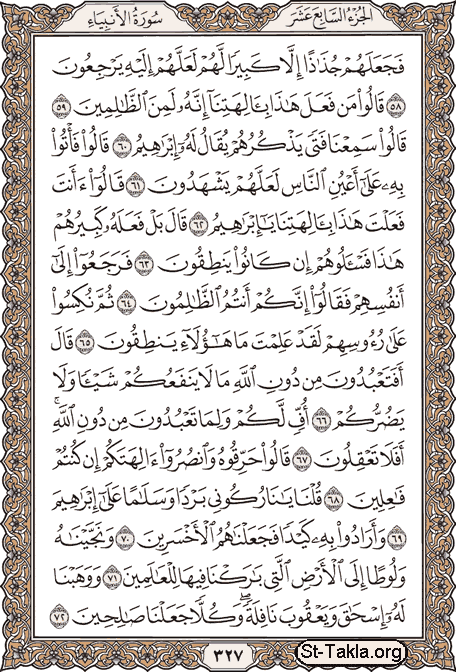 الجزء السابع عشر سورة الأنبياء
فَجَعَلَهُمْ جُذَٰذًا إِلَّا كَبِيرًا لَّهُمْ لَعَلَّهُمْ إِلَيْهِ يَرْجِعُونَ
٥٨ قَالُوا۟ مَن فَعَلَ هَٰذَا بِـَٔالِهَتِنَآ إِنَّهُۥ لَمِنَ ٱلظَّٰلِمِينَ ٥٩
قَالُوا۟ سَمِعْنَا فَتًى يَذْكُرُهُمْ يُقَالُ لَهُۥٓ إِبْرَٰهِيمُ ٦٠ قَالُوا۟ فَأْتُوا۟
بِهِۦ عَلَىٰٓ أَعْيُنِ ٱلنَّاسِ لَعَلَّهُمْ يَشْهَدُونَ ٦١ قَالُوٓا۟ ءَأَنتَ
فَعَلْتَ هَٰذَا بِـَٔالِهَتِنَا يَٰٓإِبْرَٰهِيمُ ٦٢ قَالَ بَلْ فَعَلَهُۥ كَبِيرُهُمْ
هَٰذَا فَسْـَٔلُوهُمْ إِن كَانُوا۟ يَنطِقُونَ ٦٣ فَرَجَعُوٓا۟ إِلَىٰٓ
أَنفُسِهِمْ فَقَالُوٓا۟ إِنَّكُمْ أَنتُمُ ٱلظَّٰلِمُونَ ٦٤ ثُمَّ نُكِسُوا۟
عَلَىٰ رُءُوسِهِمْ لَقَدْ عَلِمْتَ مَا هَٰٓؤُلَآءِ يَنطِقُونَ ٦٥ قَالَ
أَفَتَعْبُدُونَ مِن دُونِ ٱللَّهِ مَا لَا يَنفَعُكُمْ شَيْـًٔا وَلَا
يَضُرُّكُمْ ٦٦ أُفٍّ لَّكُمْ وَلِمَا تَعْبُدُونَ مِن دُونِ ٱللَّهِ ۖ
أَفَلَا تَعْقِلُونَ ٦٧ قَالُوا۟ حَرِّقُوهُ وَٱنصُرُوٓا۟ ءَالِهَتَكُمْ إِن كُنتُمْ
فَٰعِلِينَ ٦٨ قُلْنَا يَٰنَارُ كُونِى بَرْدًا وَسَلَٰمًا عَلَىٰٓ إِبْرَٰهِيمَ
٦٩ وَأَرَادُوا۟ بِهِۦ كَيْدًا فَجَعَلْنَٰهُمُ ٱلْأَخْسَرِينَ ٧٠ وَنَجَّيْنَٰهُ
وَلُوطًا إِلَى ٱلْأَرْضِ ٱلَّتِى بَٰرَكْنَا فِيهَا لِلْعَٰلَمِينَ ٧١ وَوَهَبْنَا
لَهُۥٓ إِسْحَٰقَ وَيَعْقُوبَ نَافِلَةً ۖ وَكُلًّا جَعَلْنَا صَٰلِحِينَ ٧٢
٣٢٧
St-Takla.org